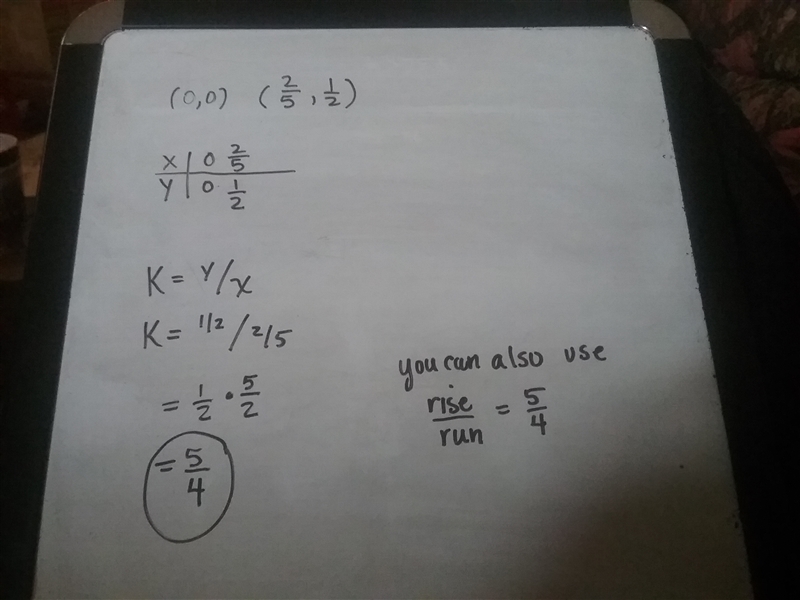 (0,0) (2/5, 1/2)
X | 0 2/5
Y | 0 1/2
K = Y/X
K = 1/2 / 2/5
= 1/2 • 5/2
= 5/4
you can also use
rise/run = 5/4